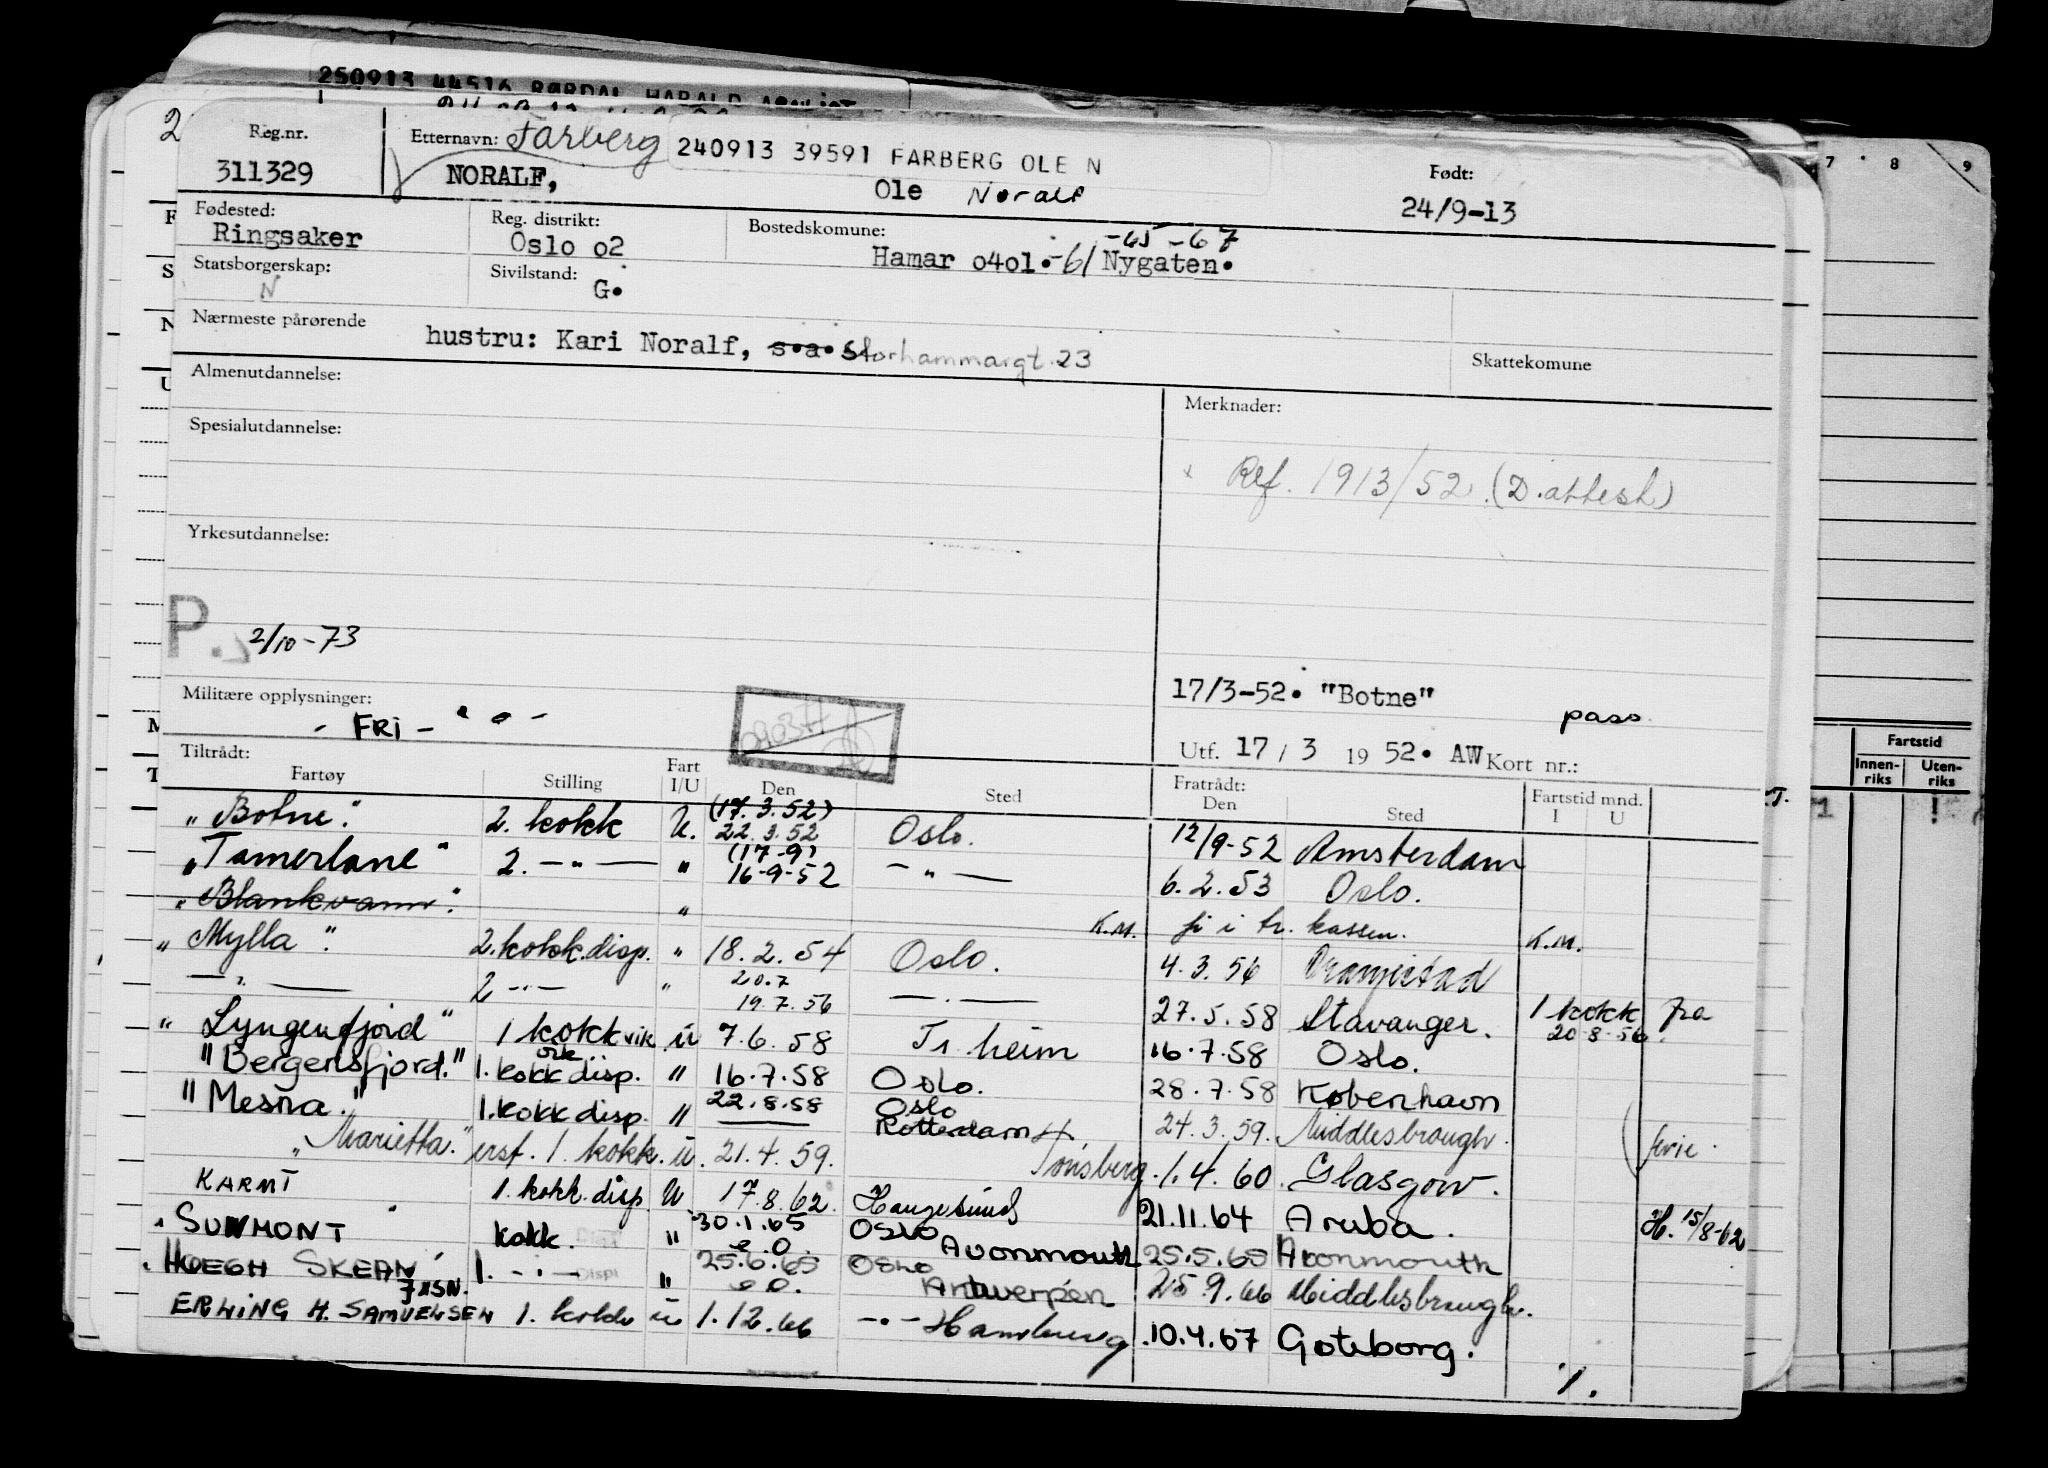 250913 44516 RØRDAL HARALD
2
Reg.nr. 311329
Etternavn: Farberg
240913 39591 FARBERG OLE N
NORALF, Ole Noralf
Født: 24/9-13
Fødested: Ringsaker
Reg. distrikt: Oslo o2
Bostedskomune: Hamar o4o1.-61 Nygaten. -65 -67
Statsborgerskap: N
Sivilstand: G.
Nærmeste pårørende hustru: Kari Noralf, s.a. Storhammargt. 23
Skattekomune
Almenutdannelse:
Merknader:
Spesialutdannelse:
x Ref. 1913/52 (D.attest)
Yrkesutdannelse:
P. 2/10-73
17/3-52. "Botne" pass
Militære opplysninger: - FRI - " " -
Utf. 17 / 3 19 52. AW Kort nr.:
Tiltrådt: Fratrådt:
Fartøy Stilling Fart I/U Den Sted Den Sted Fartstid mnd. I U
Fartstid Innen-riks Uten-riks
7 8 9
"Botne". 2. kokk U. (17.3.52) 22.3.52 Oslo. 12/9-52 Amsterdam
"Tamerlane" 2. — " — " (17-9) 16-9-52 — " — 6.2.53 Oslo.
"Blankvann". " K.M. fri i tr. kassen. K.M.
"Mylla". 2. kokk.disp. " 18.2.54 Oslo. 4.3.56 Oranjestad
— " — 2 — " — " 20.7 19.7.56 — " — 27.5.58 Stavanger. 1 kokk fra 20-8-56.
"Lyngenfjord" 1 kokk vik. ü 7.6.58 Tr.heim 16.7.58 Oslo.
"Bergensfjord." 1. kokk disp. " 16.7.58 Oslo. 28.7.58 København
"Mesna." 1. kokk disp. " 22.8.58 Oslo Rotterdam 24.3.59. Middlesbrough. ferie.
"Marietta." erst. 1. kokk. ü. 21.4.59. Tønsberg 1.4.60. Glasgow.
KARMT 1. kokk. disp U 17.8.62. Haugesund 21.11.64 Aruba. H. 15/8-62
"SUNMONT kokk. Disp " 30.1.65 e.o. Oslo Avonmouth 25.5.65 Avonmouth
"HOEGH SKEAN" 1. — " — Disp " 25.6.65 e.o. Oslo Antwerpen 25.9.66 Middlesbrough.
ERLING H. SAMUELSEN 1. kokk ü 1.12.66 — " — Hamburg 10.4.67 Gøteborg.
./.